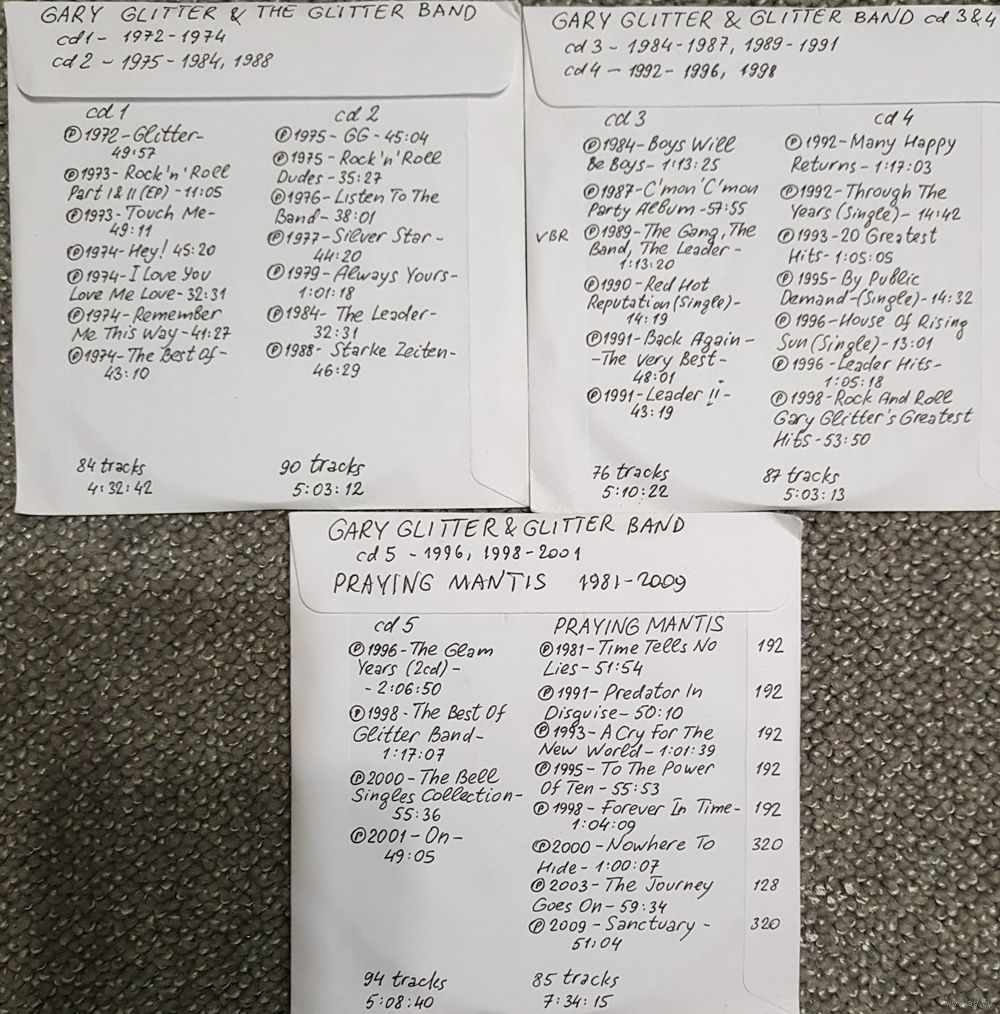 GARY GLITTER & THE GLITTER BAND
cd1 - 1972-1974
cd 2 - 1975 - 1984, 1988
cd 1
Ⓟ1972-Glitter-
49:57
Ⓟ1973-Rock'n'Roll
Part I & II (EP) - 11:05
Ⓟ1973-Touch Me-
49:11
Ⓟ1974-Hey! 45:20
Ⓟ1974-I Love You
Love Me Love-32:31
Ⓟ1974-Remember
Me This Way-41:27
Ⓟ1974-The Best Of-
43:10
84 tracks
4:32:42
cd 2
Ⓟ1975- GG - 45:04
Ⓟ1975-Rock'n'Roll
Dudes - 35:27
Ⓟ1976-Listen To The
Band-38:01
Ⓟ1977-Silver Star-
44:20
Ⓟ1979-Always Yours-
1:01:18
Ⓟ1984- The Leader-
32:31
Ⓟ1988- Starke Zeiten-
46:29
90 tracks
5:03:12
GARY GLITTER & GLITTER BAND cd 3&4
cd 3 - 1984-1987, 1989-1991
cd 4 - 1992- 1996, 1998
cd 3
Ⓟ1984-Boys Will
Be Boys-1:13:25
Ⓟ1987-C'mon C'mon
Party Album-57:55
VBR Ⓟ1989-The Gang, The
Band, The Leader-
1:13:20
Ⓟ1990-Red Hot
Reputation (Single)-
14:19
Ⓟ1991-Back Again-
-The very Best-
48:01
Ⓟ1991-Leader II-
43:19
76 tracks
5:10:22
cd 4
Ⓟ1992-Many Happy
Returns-1:17:03
Ⓟ1992-Through The
Years (Single)- 14:42
Ⓟ1993-20 Greatest
Hits-1:05:05
Ⓟ1995-By Public
Demand-(Single)-14:32
Ⓟ1996-House Of Rising
Sun (Single)-13:01
Ⓟ1996-Leader Hits-
1:05:18
Ⓟ1998-Rock And Roll
Gary Glitter's Greatest
Hits-53:50
87 tracks
5:03:13
GARY GLITTER & GLITTER BAND
cd 5 - 1996, 1998-2001
PRAYING MANTIS 1981-2009
cd 5
Ⓟ1996-The Glam
Years (2cd)-
-2:06:50
Ⓟ1998-The Best Of
Glitter Band-
1:17:07
Ⓟ2000-The Bell
Singles Collection-
55:36
Ⓟ2001-On-
49:05
94 tracks
5:08:40
PRAYING MANTIS
Ⓟ1981-Time Tells No 192
Lies-51:54
Ⓟ1991-Predator In 192
Disguise-50:10
Ⓟ1993-A Cry For The 192
New World-1:01:39
Ⓟ1995-To The Power 192
Of Ten-55:53
Ⓟ1998-Forever In Time- 192
1:04:09
Ⓟ2000-Nowhere To 320
Hide-1:00:07
Ⓟ2003-The Journey 128
Goes On-59:34
Ⓟ2009-Sanctuary- 320
51:04
85 tracks
7:34:15